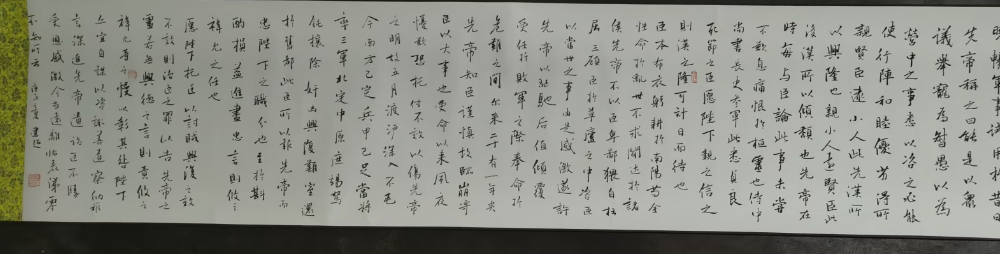 曉暢軍事試用於昔日
先帝稱之曰能是以眾
議舉寵為督愚以為
營中之事悉以咨之必能
使行陣和睦優劣得所
親賢臣遠小人此先漢所
以興隆也親小人遠賢臣此
後漢所以傾頹也先帝在
時每與臣論此事未嘗
不歎息痛恨於桓靈也侍中
尚書長史參軍此悉貞良
死節之臣願陛下親之信之
則漢之隆可計日而待也
臣本布衣躬耕於南陽苟全
性命於亂世不求聞達於諸
侯先帝不以臣卑鄙猥自枉
屈三顧臣於草廬之中咨臣
以當世之事由是感激遂許
先帝以驅馳后值傾覆
受任於敗軍之際奉命於
危難之間爾來二十有一年矣
先帝知臣謹慎故臨崩寄
臣以大事也受命以來夙夜
憂歎恐托付不效以傷先帝
之明故五月渡泸深入不毛
今南方已定兵甲已足當將
率三軍北定中原庶竭駑
鈍攘除奸凶興復漢室還
於舊都此臣所以報先帝而
忠陛下之職分也至於斟
酌損益進盡忠言則攸之
禕允之任也
願陛下托臣以討賊興復之效
不效則治臣之罪以告先帝之
靈若無興德之言則責攸之
禕允等之慢以彰其咎陛下
亦宜自謀以咨諏善道察納雅
言深追先帝遺詔臣不勝
受恩感激今當遠離臨表涕零
不知所云